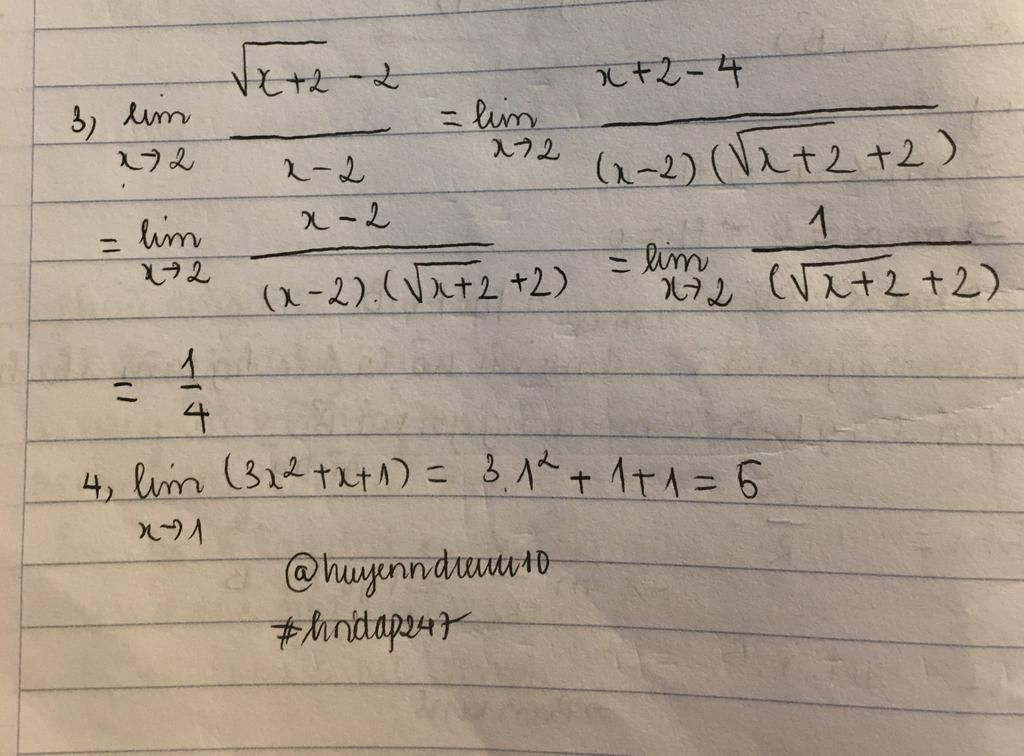 3, lim_{x→2} \frac{\sqrt{x+2} - 2}{x-2} = lim_{x→2} \frac{x+2-4}{(x-2)(\sqrt{x+2}+2)}
= lim_{x→2} \frac{x-2}{(x-2).(\sqrt{x+2}+2)} = lim_{x→2} \frac{1}{(\sqrt{x+2}+2)}
= \frac{1}{4}
4, lim_{x→1} (3x^2+x+1) = 3.1^2 + 1+1 = 5
@huyenndieuu10
#hoidap247